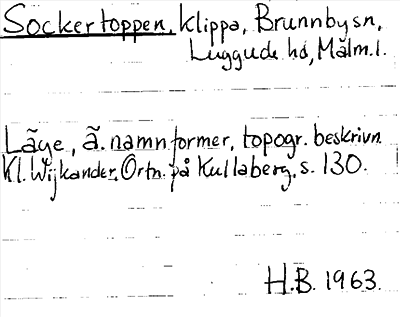 Sockertoppen, klippa, Brunnby sn,
Luggude hd, Malm. l.
Läge, ä. namnformer, topogr. beskrivn.
Kl. Wijkander, Ortn. på Kullaberg, s. 130.
H.B. 1963.